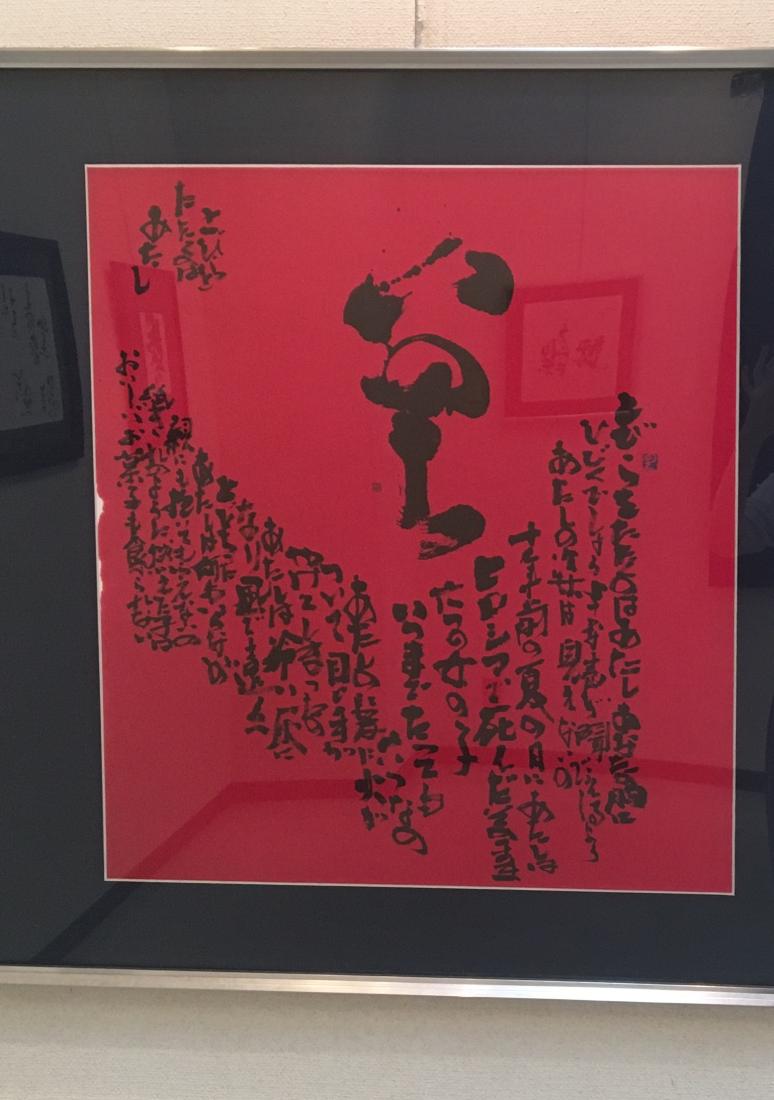 とびらをたたくのはあたしあなたの胸に
ひびくでしょう小さな声が聞こえるでしょう
あたしの姿は見えないの
十年前の夏の日にあたしは
ヒロシマで死んだそのまま
六つの女の子
いつまでたっても
六つなの
あたしの髪に火が
ついて目と手が
やけてしまったの
あたしは冷い灰に
なり風で遠くへ
あたしは何もいらないの
抱いてもらえないの
紙きれのように燃えた子は
おいしいお菓子も食べられない
とびらを
たたくのは
あたし